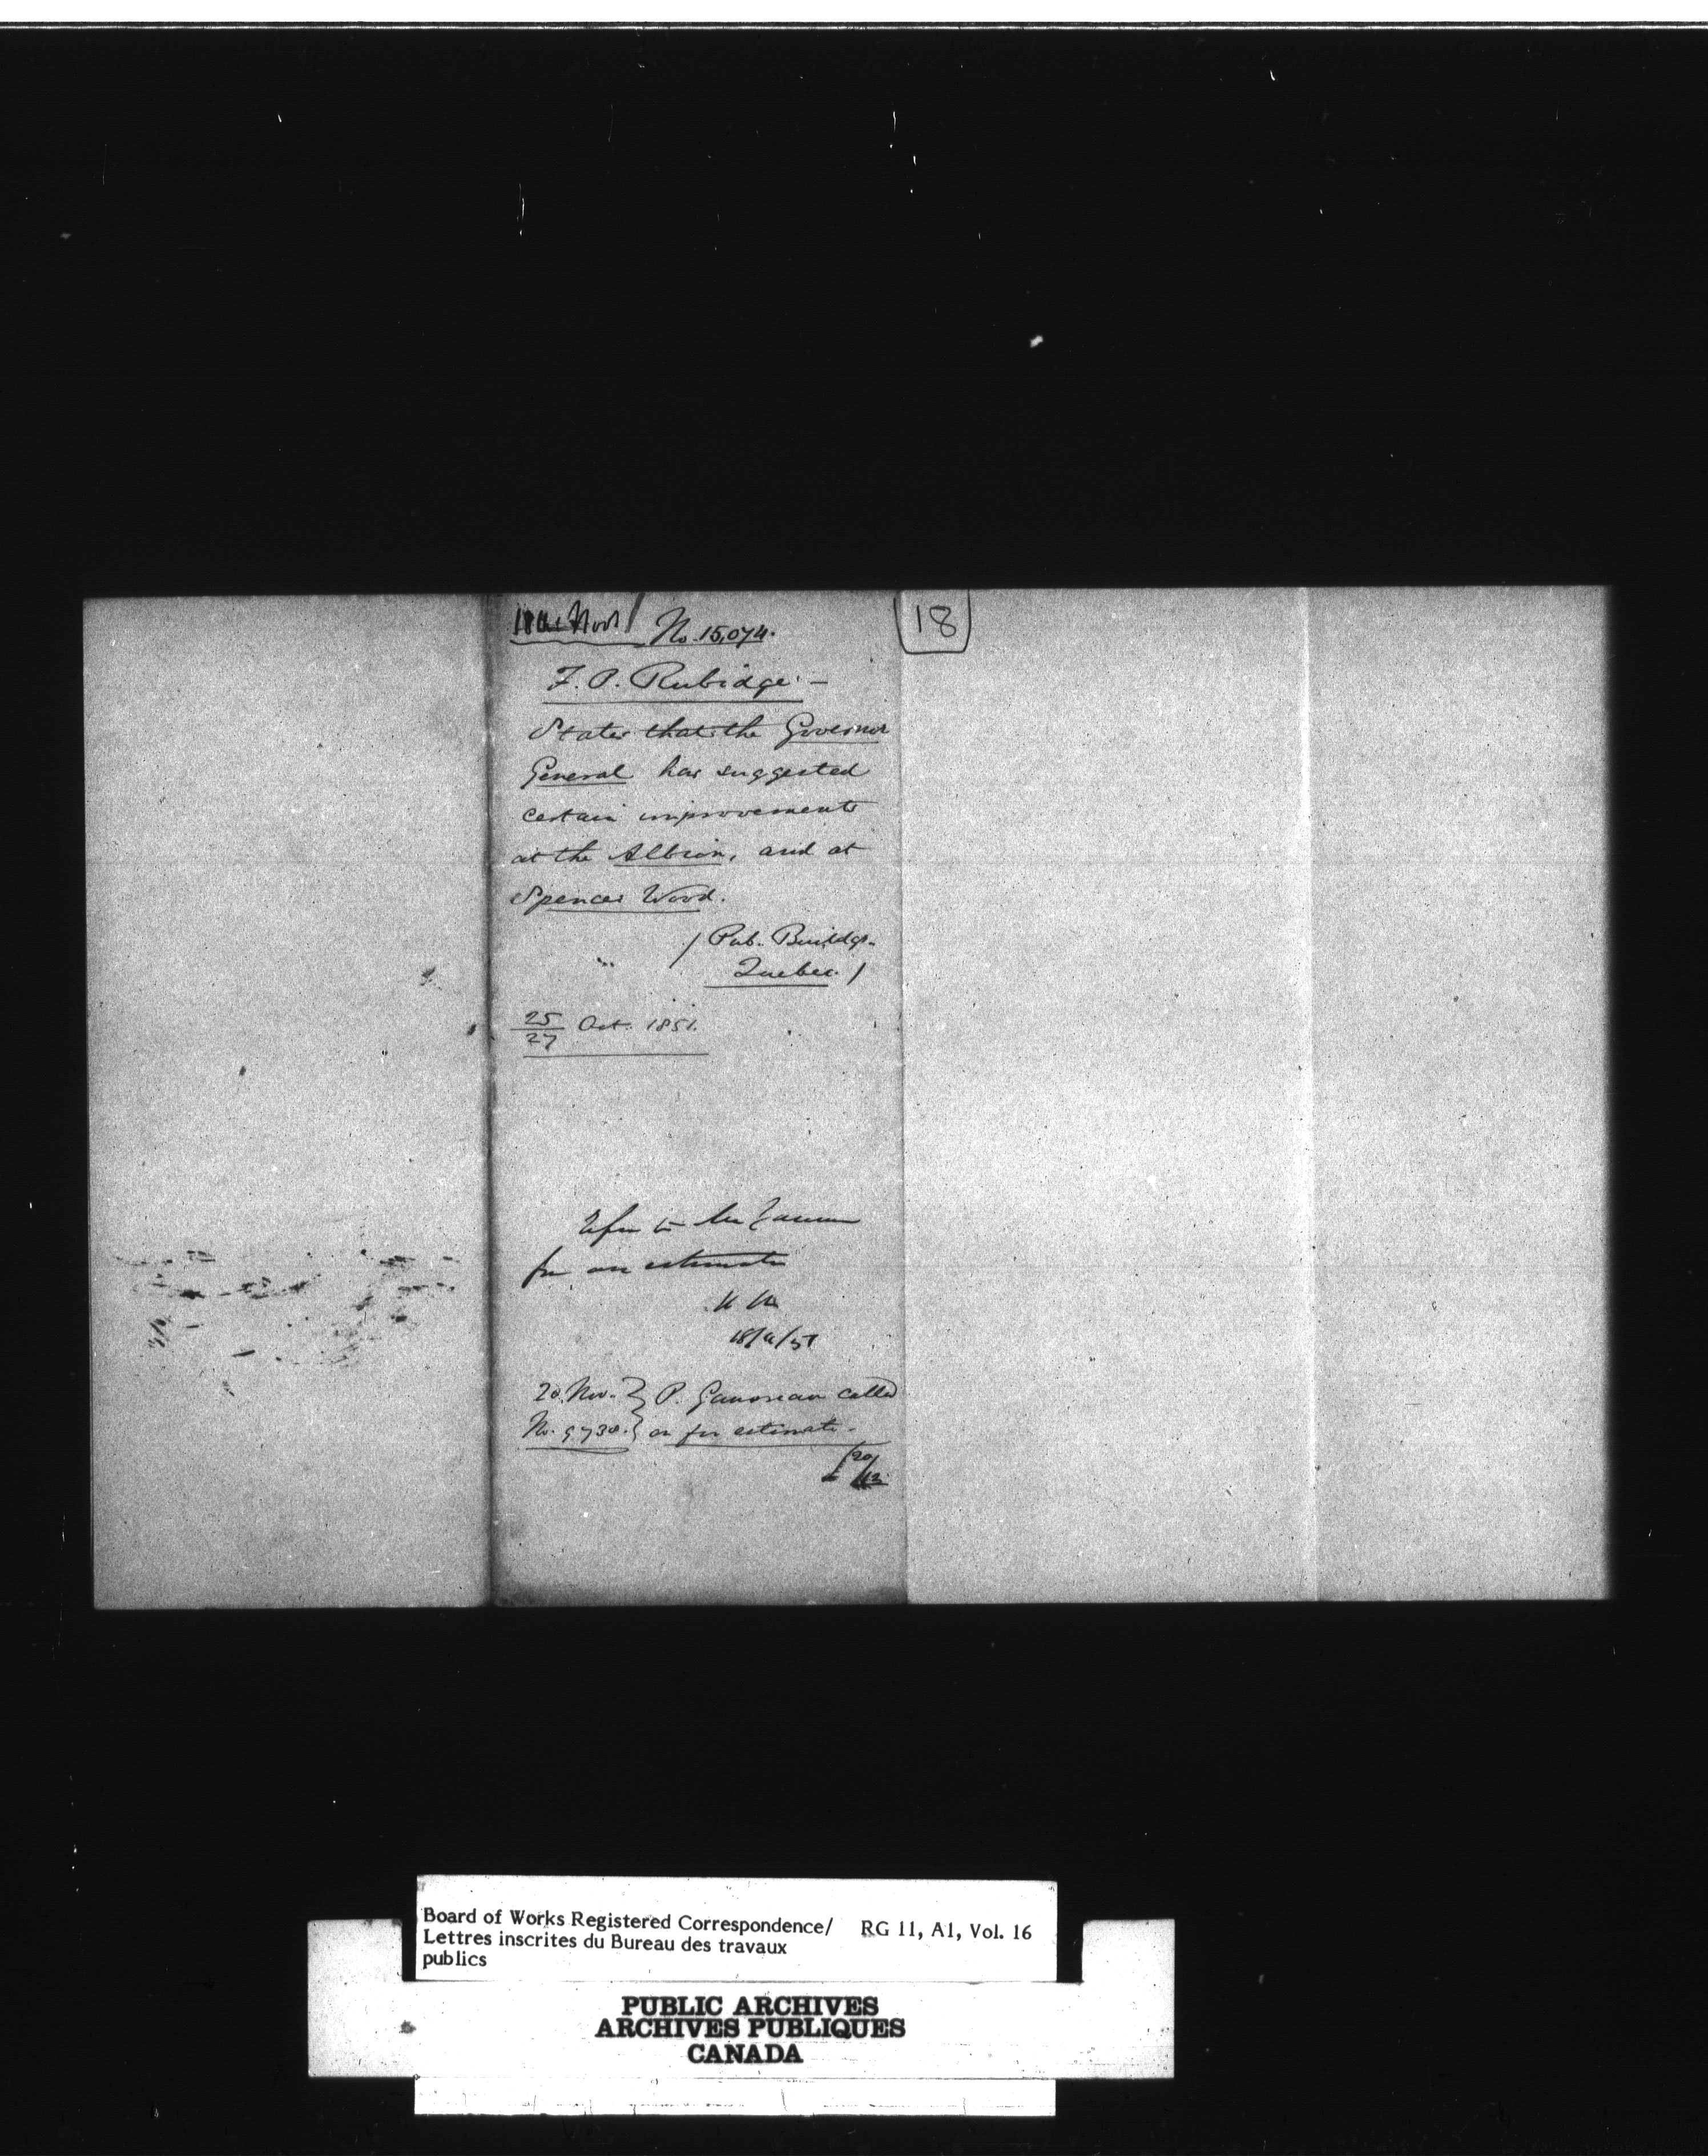 18th Nov No. 15,074.
18
F. P. Rubidge: —
States that the Governor
General has suggested
certain improvements
at the Albion, and at
Spencer Wood.
/ Pub. Buildgs.
Quebec. /
25/27 Oct. 1851.
Refer to Mr
for an estimate
18/11/51
20. Nov. } P. Gauvreau called
No. 9730. } on for estimate.
Board of Works Registered Correspondence/ RG 11, A1, Vol. 16
Lettres inscrites du Bureau des travaux
publics
PUBLIC ARCHIVES
ARCHIVES PUBLIQUES
CANADA